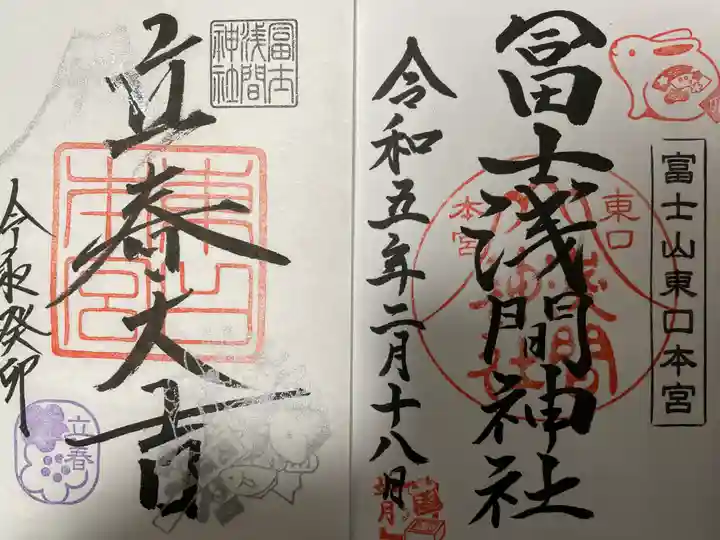 富士山東口本宮
冨士浅間神社
東口
本宮
浅間
神社
令和五年二月十八日
冨士
浅間
神社
立春大吉
東口
本宮
令和癸卯
立春